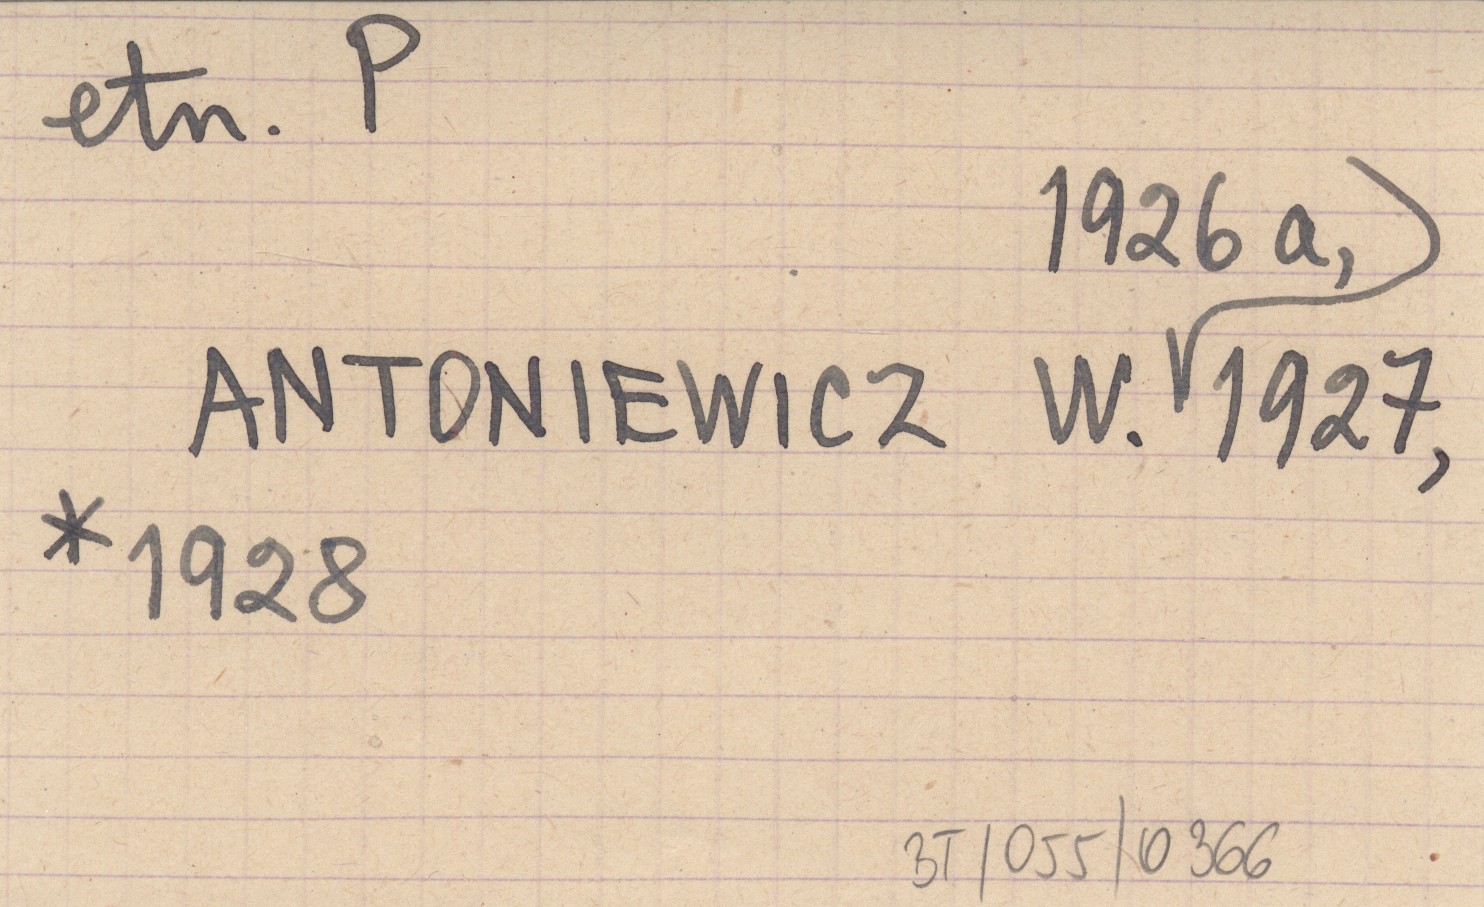 etn. P
1926 a,
ANTONIEWICZ W. 1927,
*1928
3T/055/0366